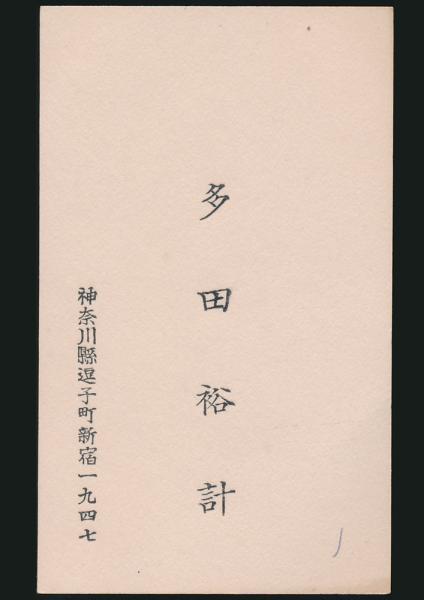 多田裕計
神奈川縣逗子町新宿一九四七